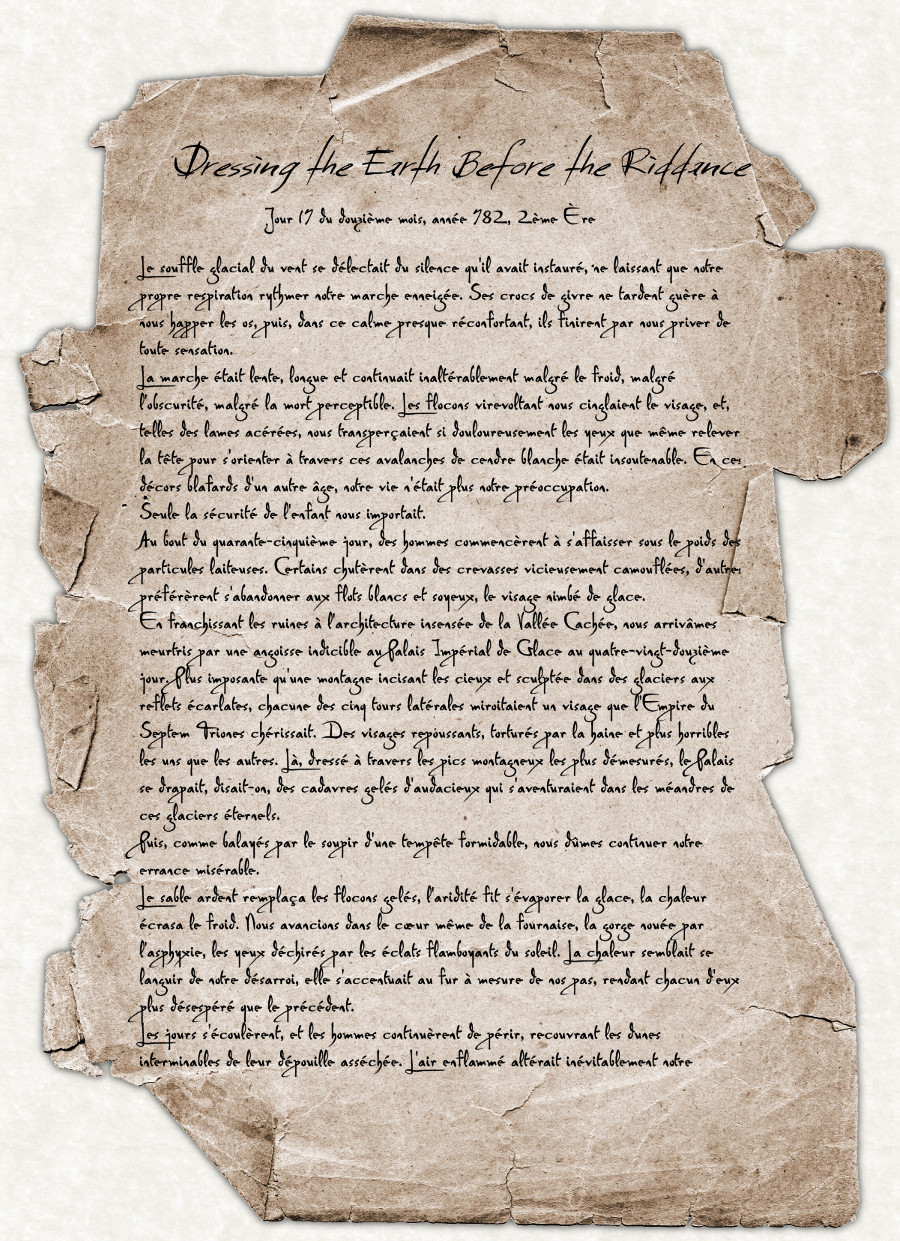 Dressing the Earth Before the Riddance
Jour 17 du douzième mois, année 782, 2ème Ère
Le souffle glacial du vent se délectait du silence qu'il avait instauré, ne laissant que notre
propre respiration rythmer notre marche enneigée. Ses crocs de givre ne tardent guère à
nous happer les os, puis, dans ce calme presque réconfortant, ils finirent par nous priver de
toute sensation.
La marche était lente, longue et continuait inaltérablement malgré le froid, malgré
l'obscurité, malgré la mort perceptible. Les flocons virevoltant nous cinglaient le visage, et,
telles des lames acérées, nous transperçaient si douloureusement les yeux que même relever
la tête pour s'orienter à travers ces avalanches de cendre blanche était insoutenable. En ces
décors blafards d'un autre âge, notre vie n'était plus notre préoccupation.
Seule la sécurité de l'enfant nous importait.
Au bout du quarante-cinquième jour, des hommes commencèrent à s'affaisser sous le poids des
particules laiteuses. Certains chutèrent dans des crevasses vicieusement camouflées, d'autres
préférèrent s'abandonner aux flots blancs et soyeux, le visage nimbé de glace.
En franchissant les ruines à l'architecture insensée de la Vallée Cachée, nous arrivâmes
meurtris par une angoisse indicible au Palais Impérial de Glace au quatre-vingt-douzième
jour. Plus imposante qu'une montagne incisant les cieux et sculptée dans des glaciers aux
reflets écarlates, chacune des cinq tours latérales miroitaient un visage que l'Empire du
Septem Triones chérissait. Des visages repoussants, torturés par la haine et plus horribles
les uns que les autres. Là, dressé à travers les pics montagneux les plus démesurés, le Palais
se drapait, disait-on, des cadavres gelés d'audacieux qui s'aventuraient dans les méandres de
ces glaciers éternels.
Puis, comme balayés par le soupir d'une tempête formidable, nous dûmes continuer notre
errance misérable.
Le sable ardent remplaça les flocons gelés, l'aridité fit s'évaporer la glace, la chaleur
écrasa le froid. Nous avancions dans le cœur même de la fournaise, la gorge nouée par
l'asphyxie, les yeux déchirés par les éclats flamboyants du soleil. La chaleur semblait se
languir de notre désarroi, elle s'accentuait au fur à mesure de nos pas, rendant chacun d'eux
plus désespéré que le précédent.
Les jours s'écoulèrent, et les hommes continuèrent de périr, recouvrant les dunes
interminables de leur dépouille asséchée. L'air enflammé altérait inévitablement notre